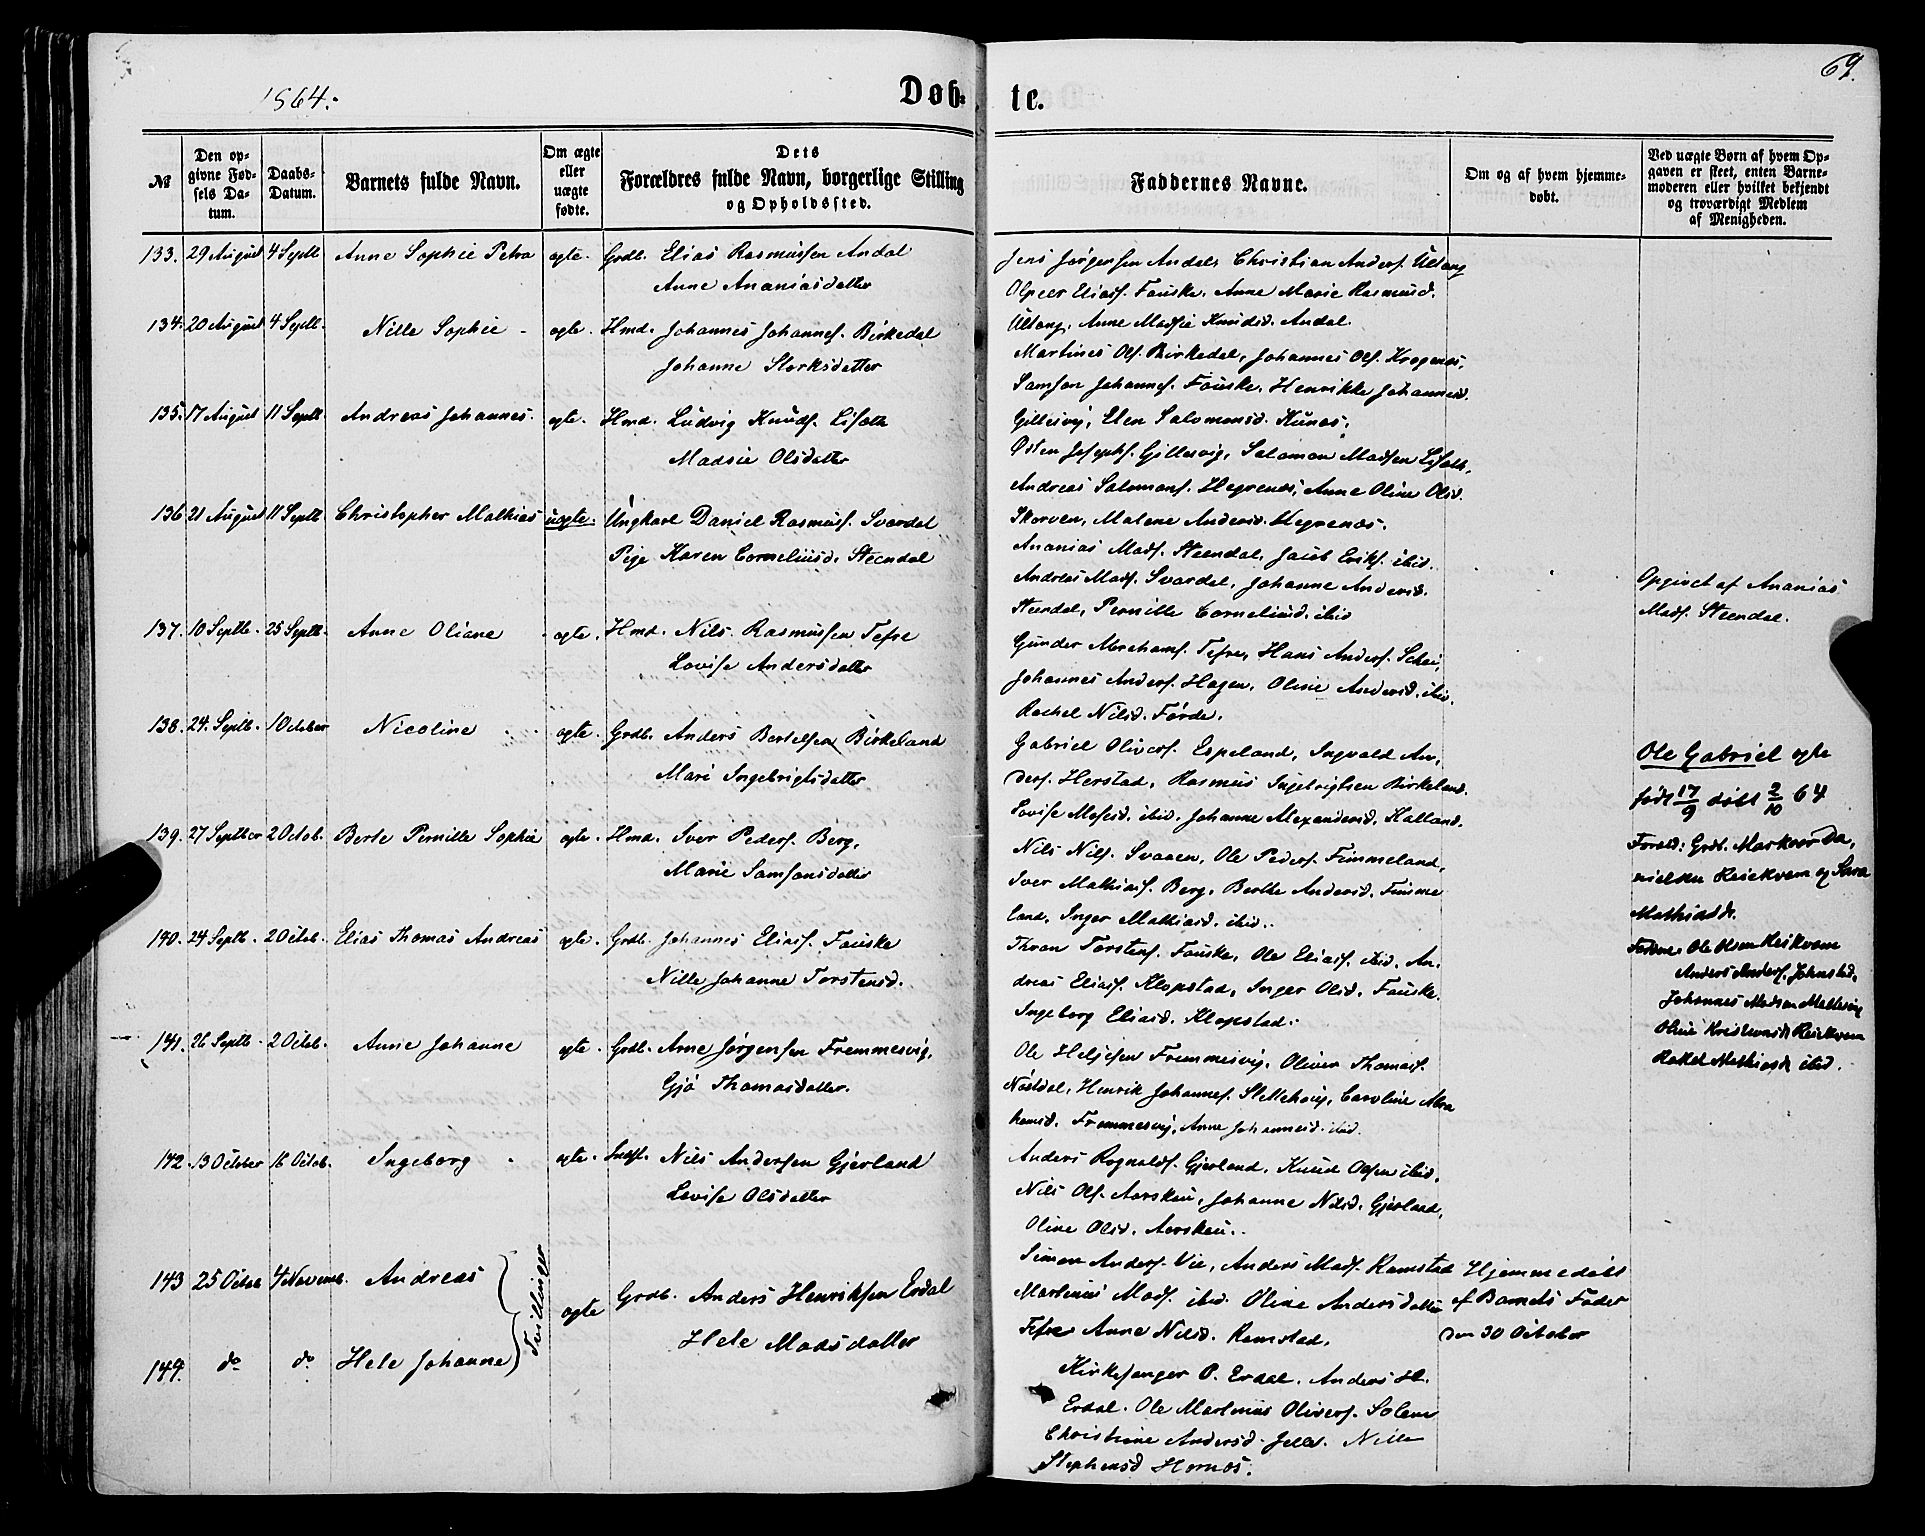 1864.
Døb-
te.
69.
№
Den op-
givne Fød-
sels Da-
tum.
Daabs-
Datum.
Barnets fulde Navn.
Om ægte
eller
uægte
fødte.
Dets
Forældres fulde Navn, borgerlige Stilling
og Opholdssted.
Faddernes Navne.
Om og af hvem hjemme-
døbt.
Ved uægte Børn af hvem Op-
gaven er skeet, enten Barne-
moderen eller hvilket bekjendt
og troværdigt Medlem
af Menigheden.
133. 29 August 4 Septb Anne Sophie Petra ægte. Grdb. Elias Rasmussen Andal
Anne Ananiasdatter
Jens Jørgensen Andal, Christian Anders. Ültang
Olpeer Eliass. Fauske, Anne Marie Rasmusd.
Ültang, Anne Madsie Knudsd. Andal.
134. 20 August 4 Septb. Nille Sophie - ægte. Hmd. Johannes Johannes. Birkedal
Johanne Storksdatter
Martines Ols. Birkedal, Johannes Ols. Krogenæs,
Samson Johannes. Fauske, Henrikke Johannesd.
Gillesvig, Elen Salomonsd. Kunæs.
135. 17 August 11 Septb. Andreas Johannes. ægte. Hmd. Ludvig Knuds. Lisæth
Madsie Olsdatter
Østen Josephs. Gillesvig, Salomon Madsen Lisæth,
Andreas Salomons. Hegrenæs, Anne Oline Olsd.
Skorven, Malene Andersd. Hegrenæs.
136 21 August 11 Septb Christopher Mathias uægte. Ungkarl Daniel Rasmus. Svardal
Pige Karen Corneliusd. Steendal
Ananias Mads. Steendal, Jacob Eriks. ibid.
Andreas Mads. Svardal, Johanne Andersd.
Steendal, Pernille Corneliusd. ibid
Opgivet af Ananias
Mads. Steendal.
137. 10 Septb. 25 Septb. Anne Oliane - ægte. Hmd. Nils Rasmussen Tefre
Lovise Andersdatter
Gunder Abrahams. Tefre, Hans Anders. Schei,
Johannes Anders. Hagen, Oline Andersd. ibid.
Rachel Nilsd. Førde.
138. 24. Septb. 1 October Nicoline ægte. Grdb. Anders Bertelsen Birkeland
Mari Ingebrigtsdatter
Gabriel Olivers. Espeland, Ingvald An-
ders. Herstad, Rasmus Ingebrigtsen Birkeland.
Lovise Mosesd. ibid. Johanne Alexandersd. Halland.
Ole Gabriel ægte
født 17/9 døbt 2/10 64
Foræld: Grdb. Markvor Da-
nielsen Reiekvam og Sara
Mathiasdr.
Faddere: Ole Olsen Reikvam
Anders Anders. Johnstad,
Johannes Madsen Mellevig
Oline Kristensd. Reikvam
Rakel Mathiasdr. ibid.
139. 27 September 2 Octob. Berte Pernille Sophie ægte. Hmd. Iver Peders. Berg,
Marie Samsonsdatter
Nils Nils. Svaaen, Ole Peders. Fimmeland,
Iver Mathias. Berg, Berthe Andersd. Fimme
land, Inger Mathiasd. ibid.
140. 24 Septb. 2 Octob. Elias Thomas Andreas ægte. Grdb. Johannes Eliass. Fauske
Nille Johanne Torstensd.
Thron Torstens. Fauske, Ole Eliass. ibid. An-
dreas Eliass. Klopstad, Inger Olsd. Fauske.
Ingeborg Eliasd. Klopstad.
141. 26 Septb. 2 Octb. Anne Johanne ægte. Grdb. Arne Jørgensen Fremmesvig,
Gjø Thomasdatter.
Ole Helgesen Fremmesvig, Oliver Thomass.
Nøstdal, Henrik Johannes. Stellehoug, Caroline Abra
hamsd. Fremmesvig, Anne Johannesd. ibid.
142. 13 October 16 Octob. Ingeborg ægte. Indst. Nils Andersen Gjerland
Lovise Olsdatter
Anders Rognalds. Gjerland, Knud Olsen ibid.
Nils Ols. Aarskau, Johanne Nilsd. Gjerland,
Oline Olsd. Aarskau.
143 25 Octob 4 Novemb. Andreas
Tvillinger
ægte Grdb. Anders Henriksen Erdal
Hele Madsdatter
Simon Anders. Vie, Anders Mads. Ramstad
Martinus Mads. ibid. Oline Andersdatter
Tefre Anne Nilsd. Ramstad.
Hjemmedøbt
af Barnets Fader
den 30 October
144. do do Hele Johanne
Kirkesanger P. Erdal, Anders H.
Erdal. Ole Martinus Olivers. Solem
Christine Andersd. Nille
Stephensd Hornæs.